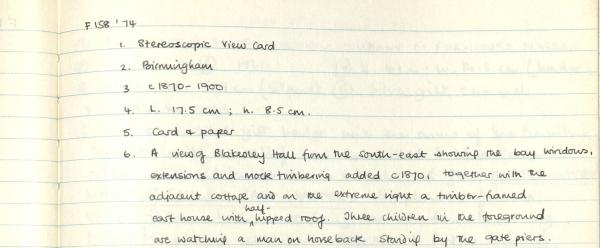 F158 '74
1. Stereoscopic View Card
2. Birmingham
3 c1870-1900
4. L. 17.5 cm ; h. 8.5 cm.
5. Card & paper
6. A view of Blakesley Hall from the south-east showing the bay windows,
extensions and mock timbering added c1870, together with the
adjacent cottage and on the extreme right a timber-framed
east house with half-hipped roof. Three children in the foreground
are watching a man on horseback standing by the gate piers.